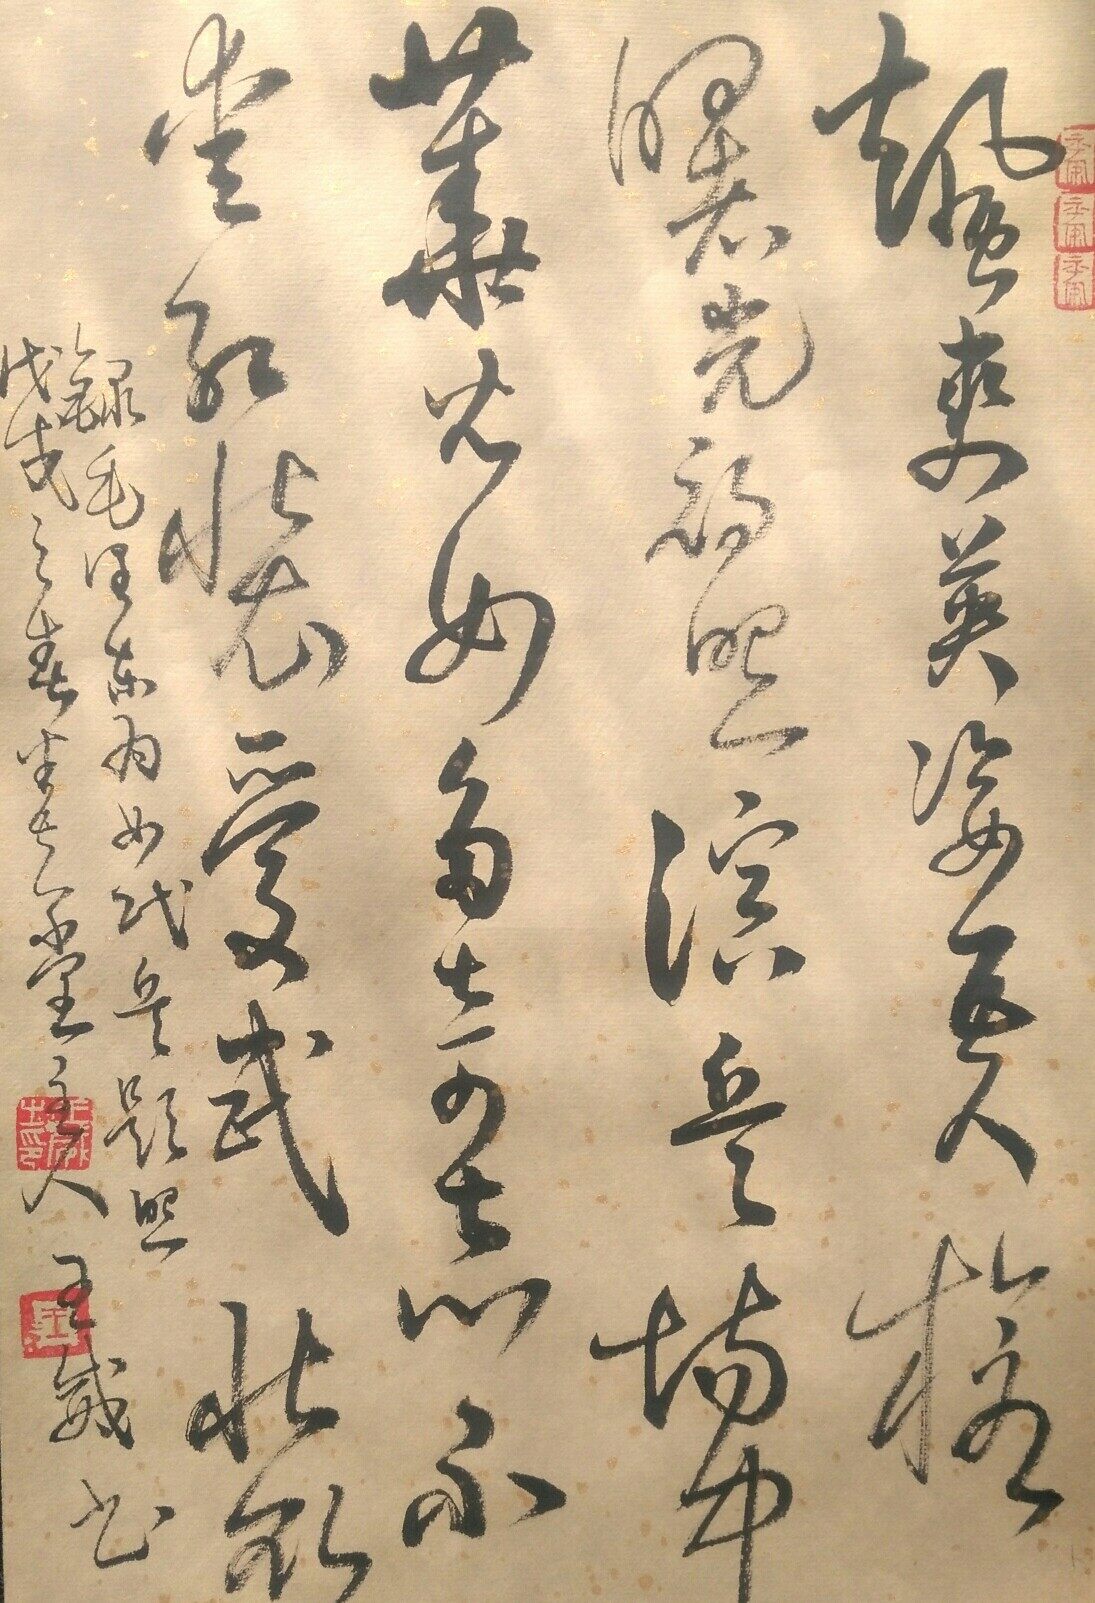 颯爽英姿五尺槍
曙光初照演兵場中
華兒女多奇志不
愛紅裝愛武裝
錄毛澤東為女民兵題照
戊戌之春堂主人王威书
王威之印
王